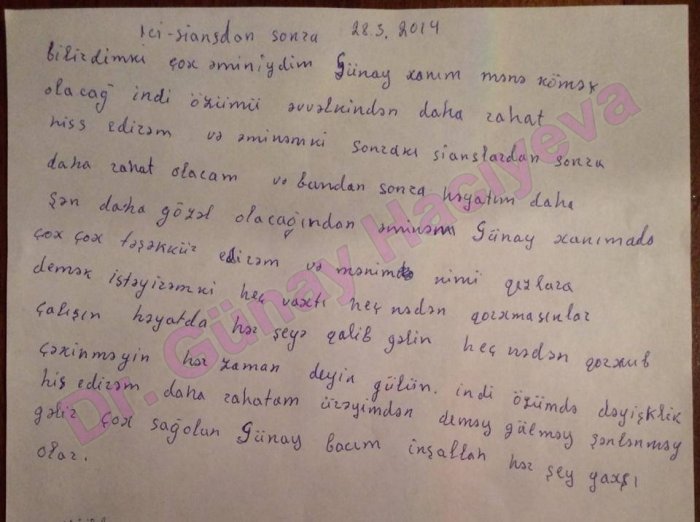 Ici-sianşdan sonra 28.3.2014
bilirdimki çox əminiydim Günay xanım mənə kömək
olacağ indi özümü əvvəlkindən daha rahat
hiss edirəm və əminəmki sonrakı sianslardan sonra
daha rahat olacam və bundan sonra həyatım daha
şən daha gözəl olacağından əminəm Günay xanımada
çox çox təşəkkür edirəm və mənim nimi qızlara
demək istəyirəmki heç vaxtı heç nədən qorxmasınlar
çalışın həyatda hər şeyə qalib gəlin heç nədən qorxub
çəkinməyin hər zaman deyin gülün. indi özümdə dəyişklik
hiş edirəm daha rahatam ürəyimdən deməy gülməy şənlənməy
gəlir çox sağolan Günay bacım inşallah hər şey yaxşı
olar.
Dr. Günay Hacıyeva